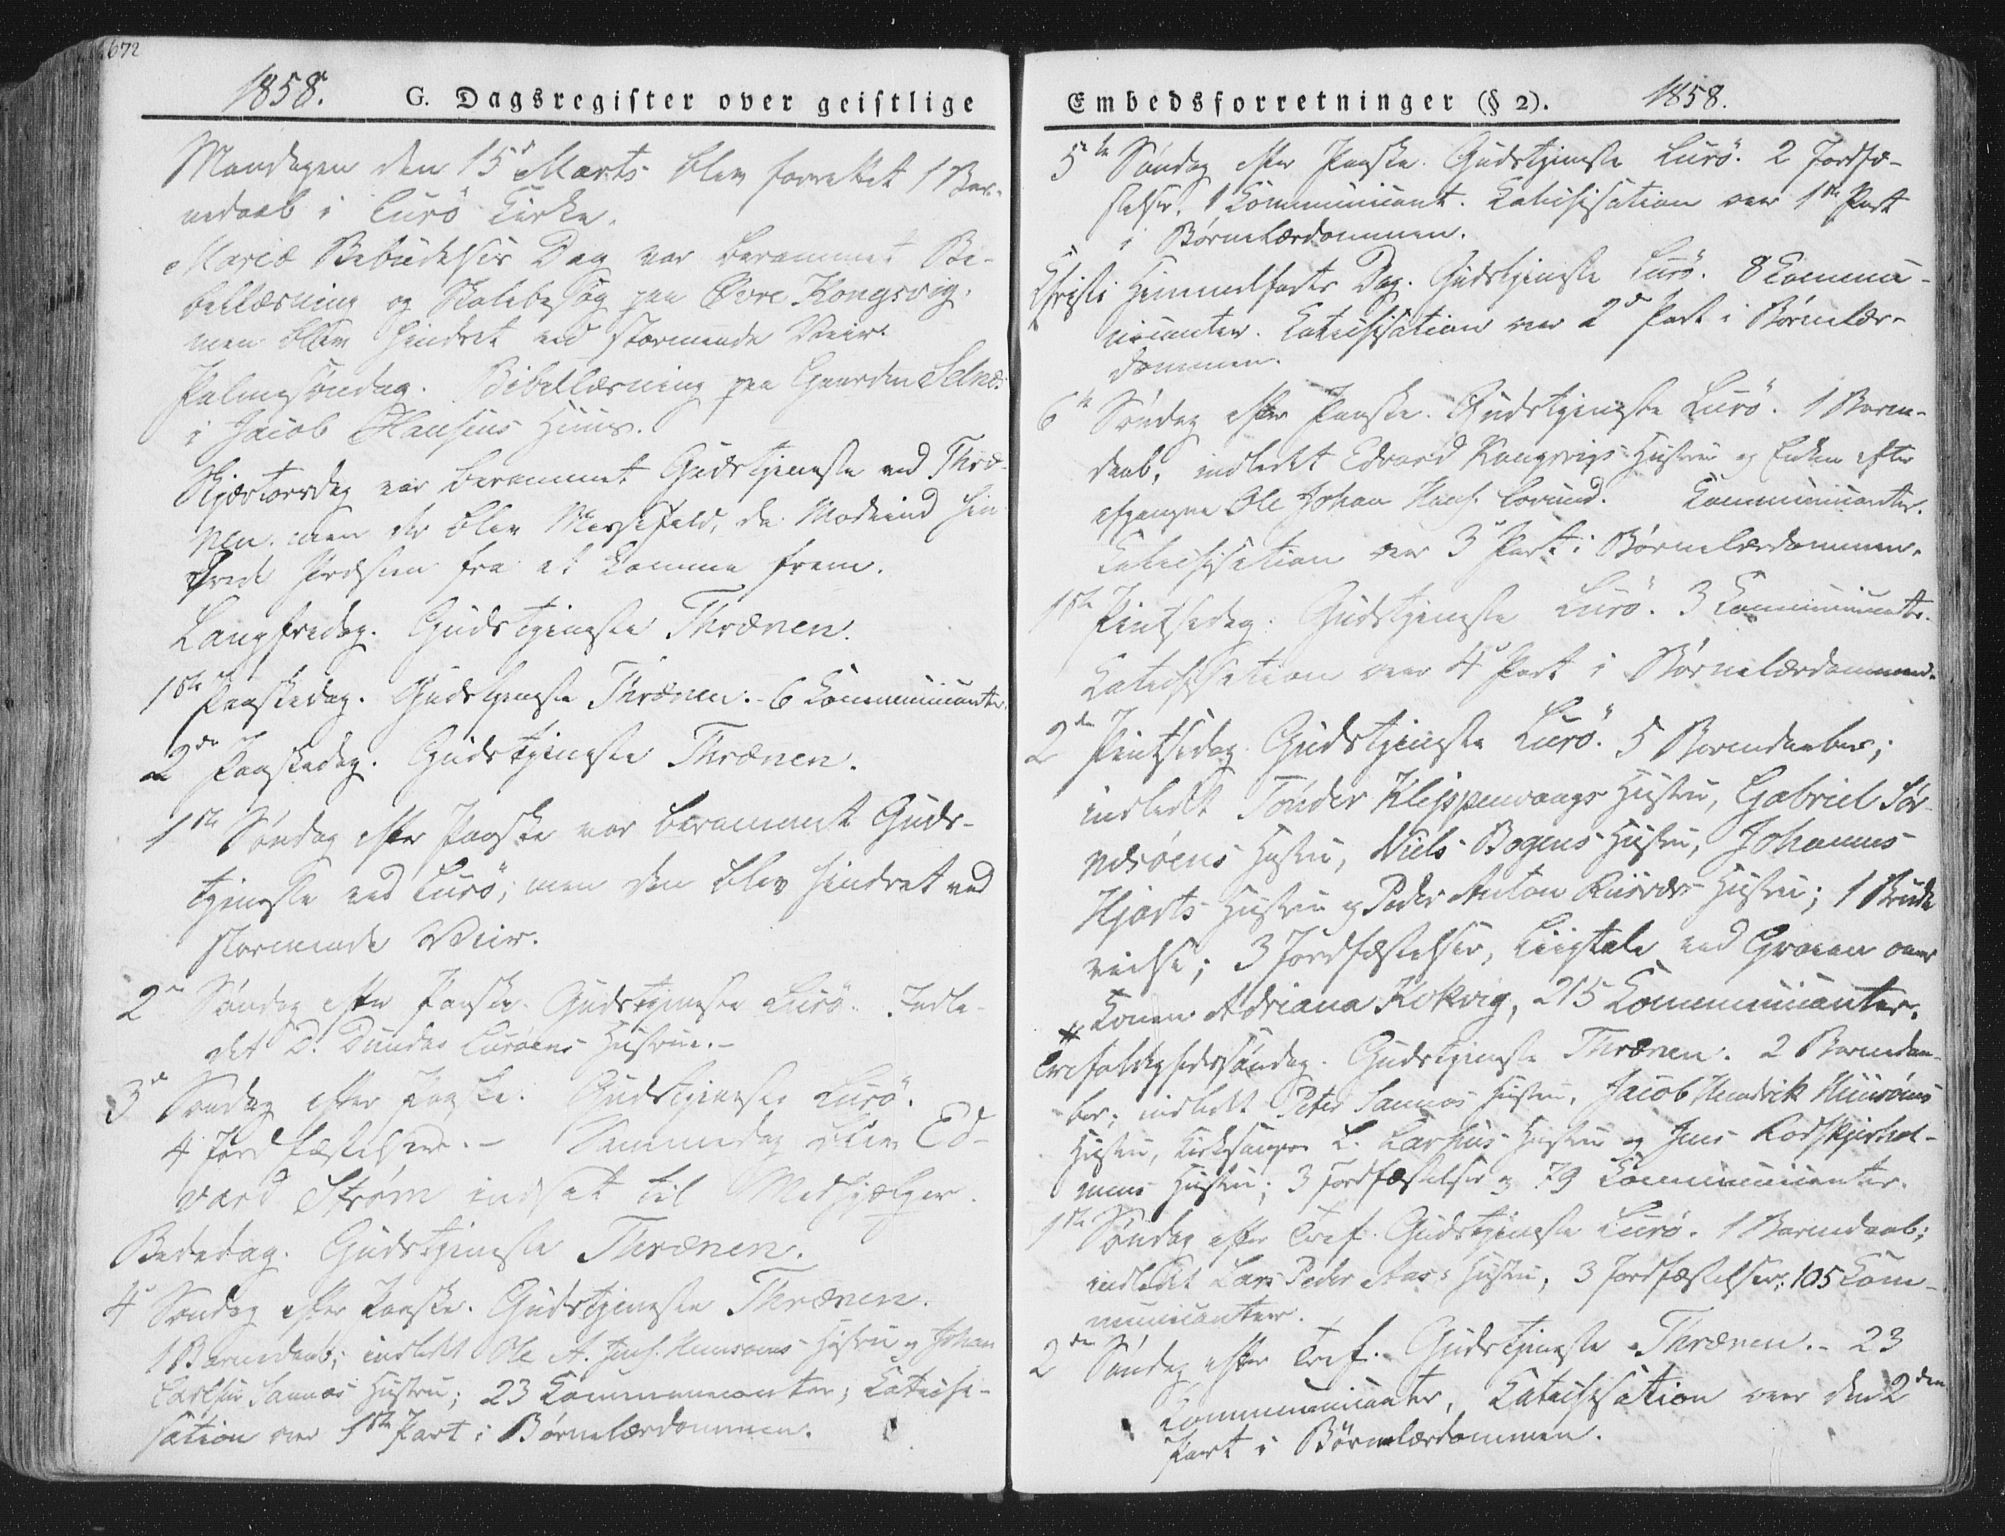 672
1858.
G. Dagsregister over geistlige
Mandagen den 15de Marts blev forrettet 1 Bar-
nedaab i Lurö Kirke.
Mariæ Bebudelses Dag var berammet Bi-
bellæsning og Skolebesøg paa Øvre Kongsvig,
men blev hindret ved stormende Veir.
Palmesöndag. Bibellæsning paa Gaarden Selnæs
i Jacob Hansens Huus.
Skjærtorsdag var berammet Gudstjeneste ved Thræ-
nen. men der blev Messefald, da Modvind hin-
drede Præsten fra at komme frem.
Langfredag. Gudstjeneste Thrænen.
1ste Paaskedag. Gudstjeneste Thrænen. - 6 Communicanter.
2den Paaskedag. Gudstjeneste Thrænen.
1ste Söndag efter Paaske var berammet Guds-
tjeneste ved Lurö; men den blev hindret ved
stormende Veir.
2den Söndag efter Paaske. Gudstjeneste Lurö. Indle-
det D. Dundas Luröens Hustrue. -
3de Söndag efter Paaske. Gudstjeneste Lurö.
4 Jordfæstelser. - Samme dag blev Ed-
vard Strøm indsat til Medhjælper.
Bededag. Gudstjeneste Thrænen.
4de Söndag efter Paaske. Gudstjeneste Thrænen.
1 Barnedaab; indledt Ole A. Hustru og Johan
Carlsen Sannæs Hustru; 23 Communicanter; Catechi-
sation over 1ste Part i Børnelærdommen.
Embedsforretninger (§ 2).
1858.
5te Söndag efter Paaske. Gudstjeneste Lurö. 2 Jordfæ-
stelser. 1 Communicant. Catechisation over 1ste Part
i Børnelærdommen.
Christi Himmelfarts Dag. Gudstjeneste Lurö. 8 Commu-
nicanter. Catechisation over 2den Part i Børnelær-
dommen.
6te Söndag efter Paaske. Gudstjeneste Lurö. 1 Barne-
daab, indledt Edvard Kongsvigs Hustru og Enken efter
afgangne Ole Johan Hans. Lovund. Communicanter.
Catechisation over 3de Part i Børnelærdommen.
1ste Pintsedag. Gudstjeneste Lurö. 3 Communicanter.
Catechisation over 4de Part i Børnelærdommen.
2den Pintsedag Gudstjeneste Lurö. 5 Barnedaaber;
indledt Tönder Klippenvaags Hustru, Gabriel Sör-
næsöens Hustru, Niels Bogens Hustru, Johannes
Hjorts Hustru og Peder Anton Hustru; 1 Brude
vielse; 3 Jordfæstelser, Liigtale ved Graven over
Konen Adriana Kokvig, 215 Communicanter.
Trefoldighedssöndag. Gudstjeneste Thrænen. 2 Barnedaa-
ber; indledt Peter Sannæs Hustru, Jacob Hendrik Huusöens
Hustru, Kirkesanger L. Larsens Hustru og Jens Rodskjærhol-
mens Hustru; 3 Jordfæstelser og 79 Communicanter.
1ste Söndag efter Tref. Gudstjeneste Lurö. 1 Barnedaab;
indledt Lars Peder Aas's Hustru, 3 Jordfæstelser; 105 Com-
municanter.
2den Söndag efter Tref. Gudstjeneste Thrænen. - 23
Communicanter, Catechisation over den 2den
Part i Börnelærdommen.